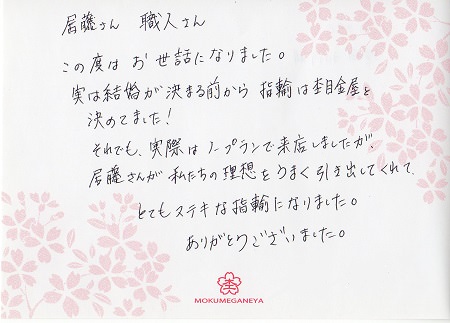 居藤さん 職人さん
この度は お世話になりました。
実は結婚が決まる前から 指輪は杢目金屋と
決めてました！
それでも、実際は ノープランで来店しましたが、
居藤さんが 私たちの理想をうまく引き出してくれて、
とてもステキな指輪になりました。
ありがとうございました。
杢
MOKUMEGANEYA